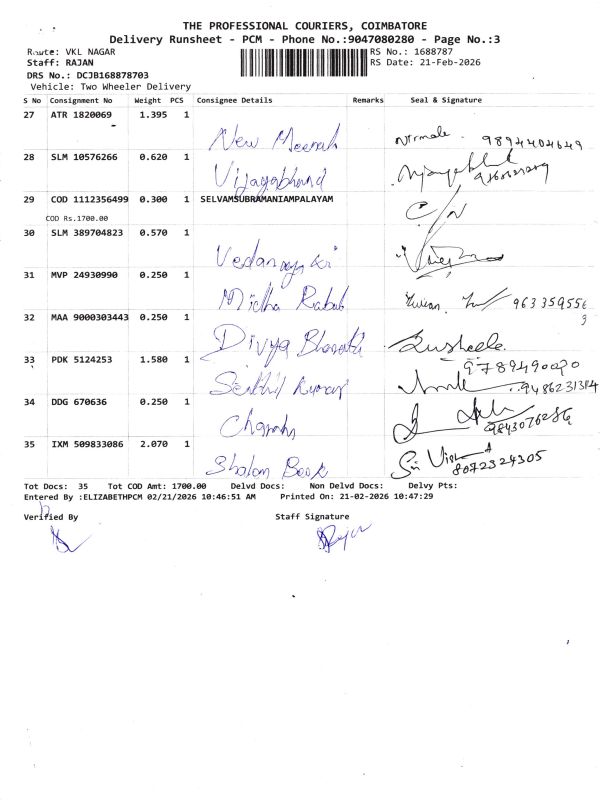 THE PROFESSIONAL COURIERS, COIMBATORE
Delivery Runsheet - PCM - Phone No.:9047080280 - Page No.:3
Route: VKL NAGAR RS No.: 1688787
Staff: RAJAN RS Date: 21-Feb-2026
DRS No.: DCJB168878703
Vehicle: Two Wheeler Delivery
S No Consignment No Weight PCS Consignee Details Remarks Seal & Signature
27 ATR 1820069 1.395 1
New Meenah Nirmala. 9894404649
28 SLM 10576266 0.620 1
Vijayabhand
29 COD 1112356499 0.300 1 SELVAMSUBRAMANIAMPALAYAM
COD Rs.1700.00 C/N
30 SLM 389704823 0.570 1
31 MVP 24930990 0.250 1
32 MAA 9000303443 0.250 1
Divya Bharathi
33 PDK 5124253 1.580 1 9789490020
Senthil Kumar 9486231384
34 DDG 670636 0.250 1
9843076286
35 IXM 509833086 2.070 1
Shalom Book Sri Vish 8072324305
Tot Docs: 35 Tot COD Amt: 1700.00 Delvd Docs: Non Delvd Docs: Delvy Pts:
Entered By :ELIZABETHPCM 02/21/2026 10:46:51 AM Printed On: 21-02-2026 10:47:29
Verified By Staff Signature
Rajan